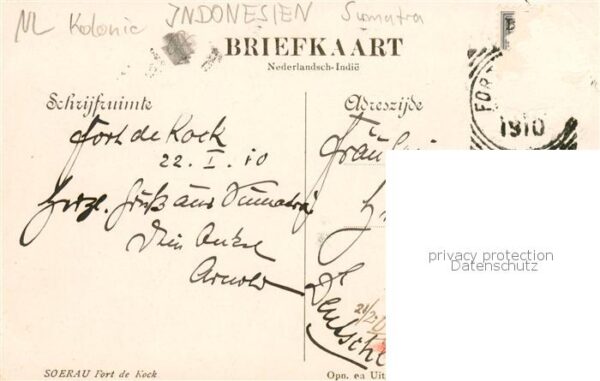 NL Kolonie INDONESIEN Sumatra
BRIEFKAART
Nederlandsch-Indië
Schrijfruimte
Adreszijde
FOR
1910
Fort de Kock
22. I. 10
Herzl. Gruß aus Sumatra
Dein Onkel
Arnold
Fräulein
privacy protection
Datenschutz
SOERAU Fort de Kock
Opn. en Uit